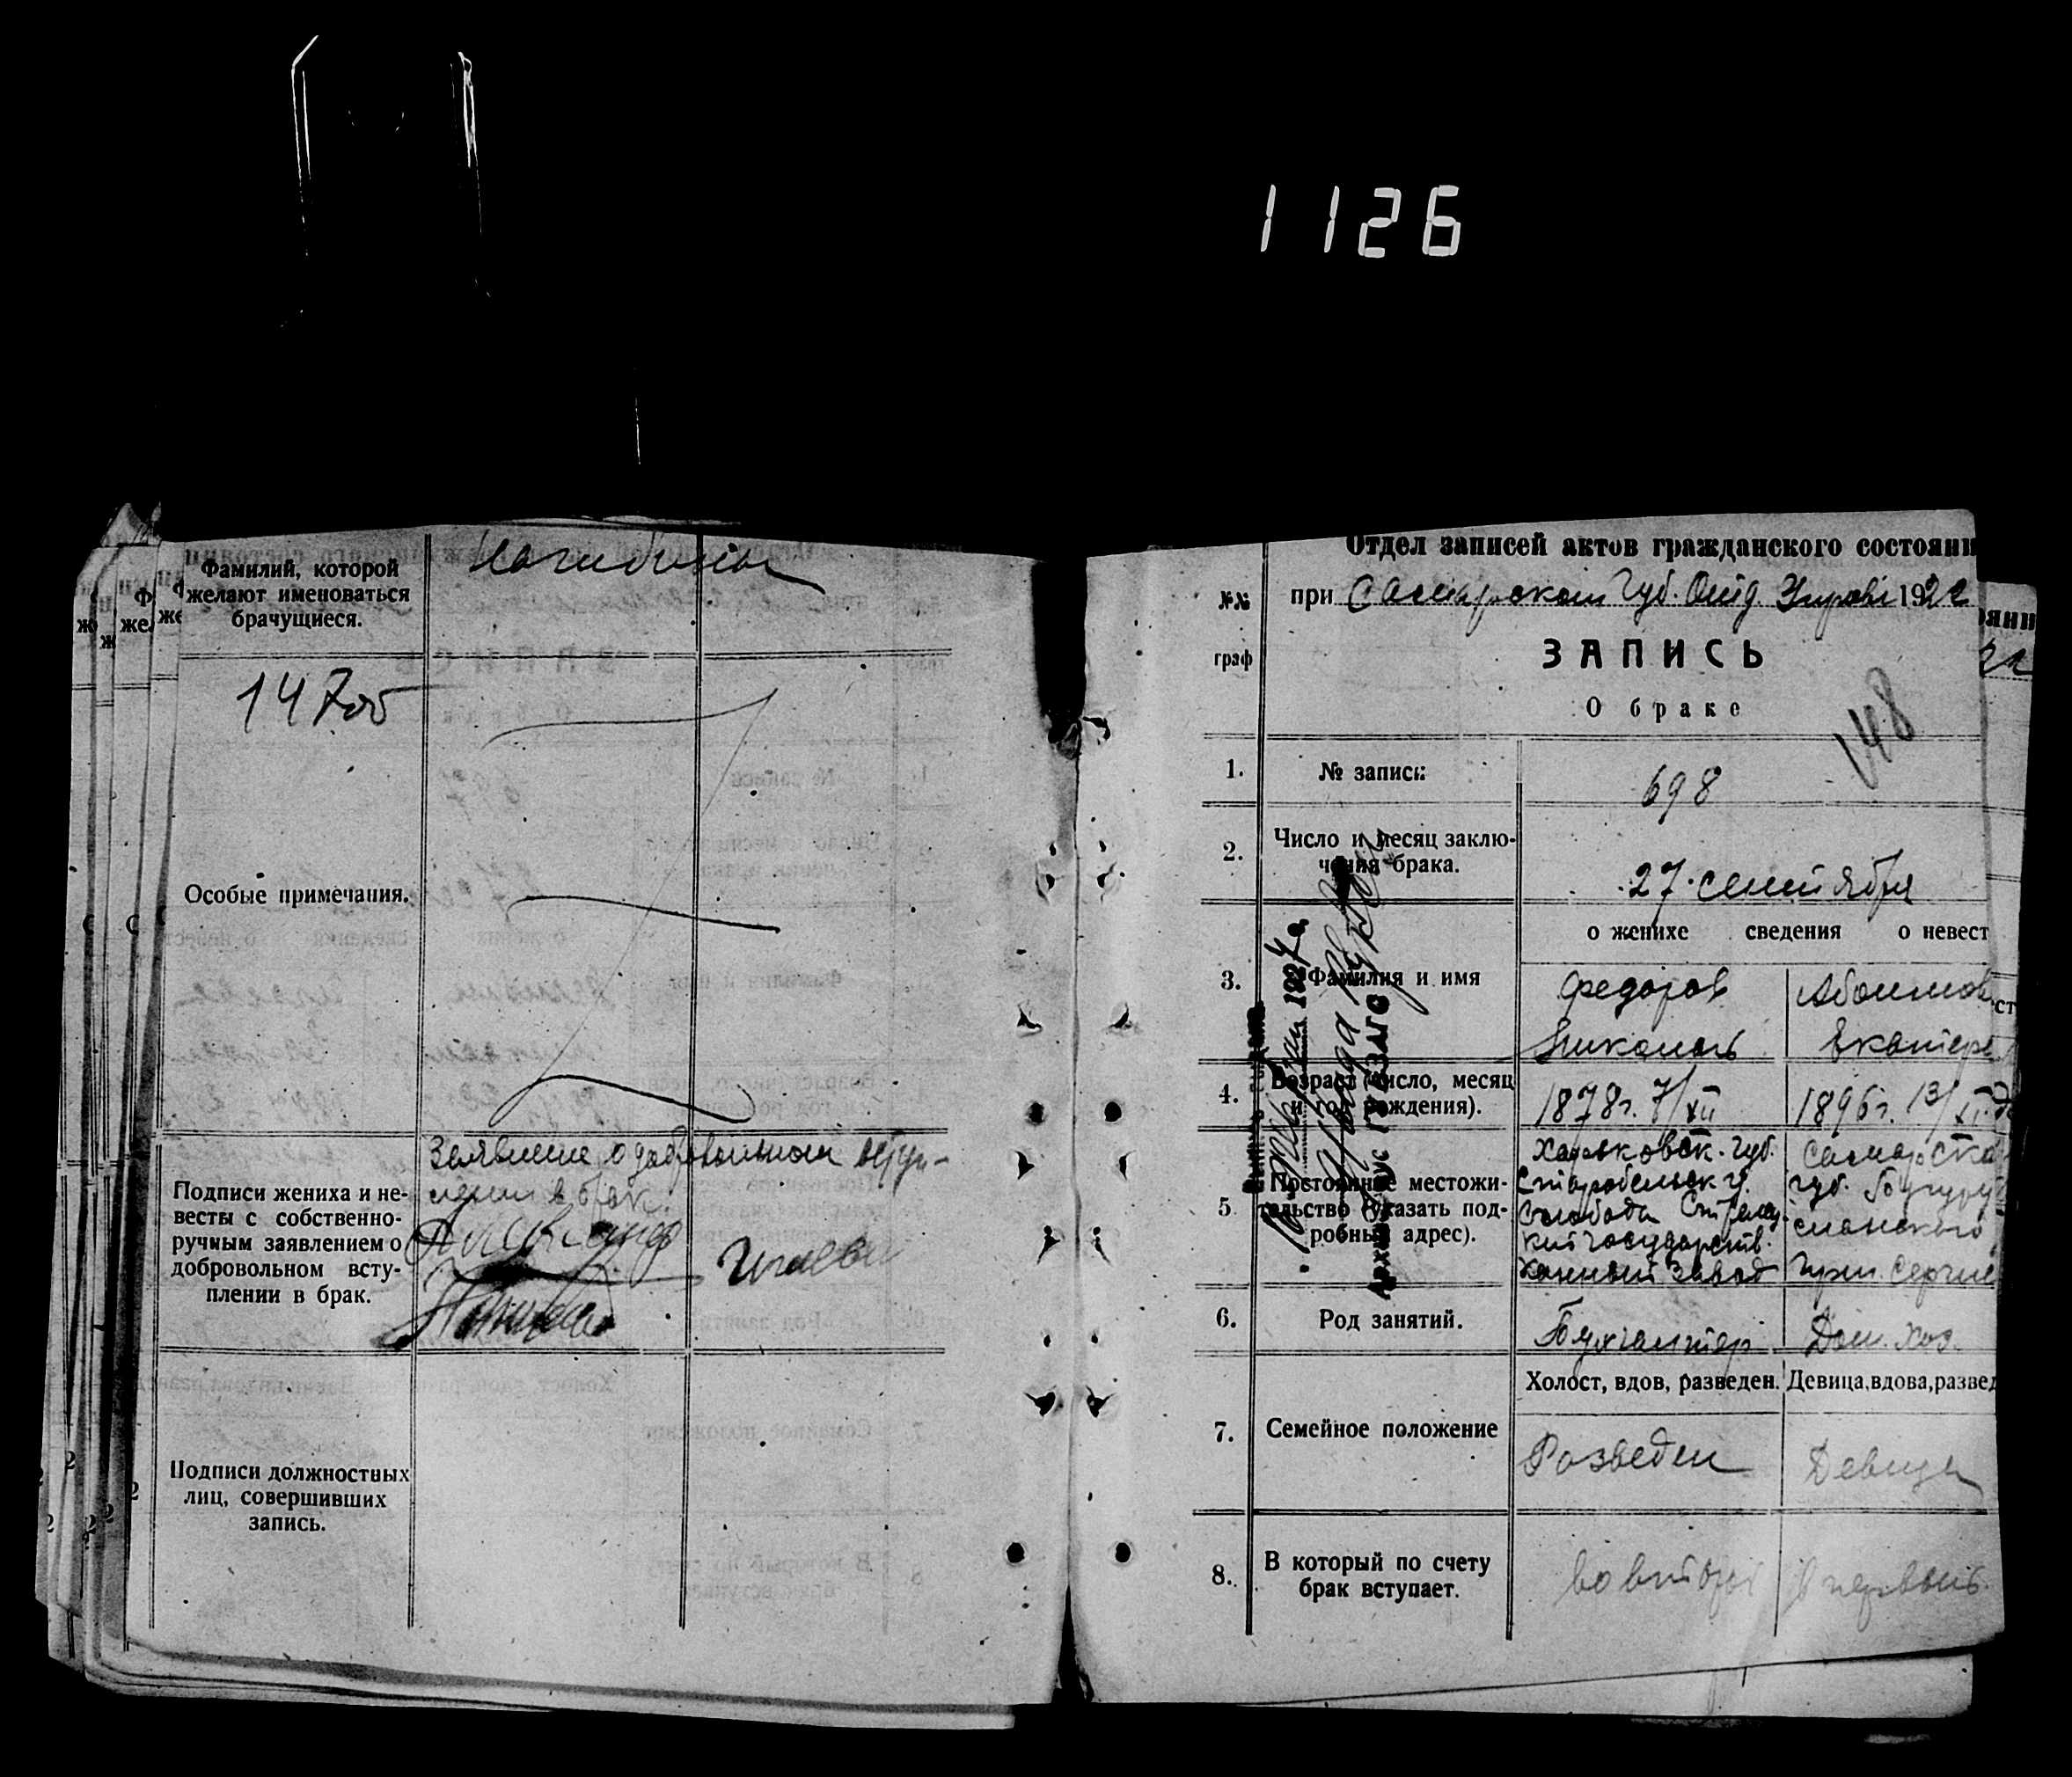 1126
Фамилий, которой
желают именоваться
брачущиеся.
147об
Особые примечания.
Подписи жениха и не-
весты с собственно-
ручным заявлением о
добровольном всту-
плении в брак.
Заявление о добровольном вступ-
лении в брак
Подписи должностных
лиц, совершивших
запись.
Отдел записей актов гражданского состояни
№№
граф
при Самарском Губ. Отд. Управ 1922
ЗАПИСЬ
О браке
148
1. № записи: 698
2. Число и месяц заклю-
чения брака.
27 сентября
о женихе сведения о невест
3. Фамилия и имя
Федоров
Николай
Абоимов
Екатери
4. Возраст (число, месяц
и год рождения).
1878г. 7/XII
1896г. 13/XI
5. Постоянное местожи-
тельство (указать под-
робный адрес).
Харьковск. Губ.
Старобельск. у.
Слобода
Государств.
Конный завод
Самарска
губ. Бугуру
сланского
Сергие
6. Род занятий.
Бухгалтер
Дом. хоз.
Холост, вдов, разведен.
Девица, вдова, развед
7. Семейное положение
Разведен
Девица
8. В который по счету
брак вступает.
во второй
в первый